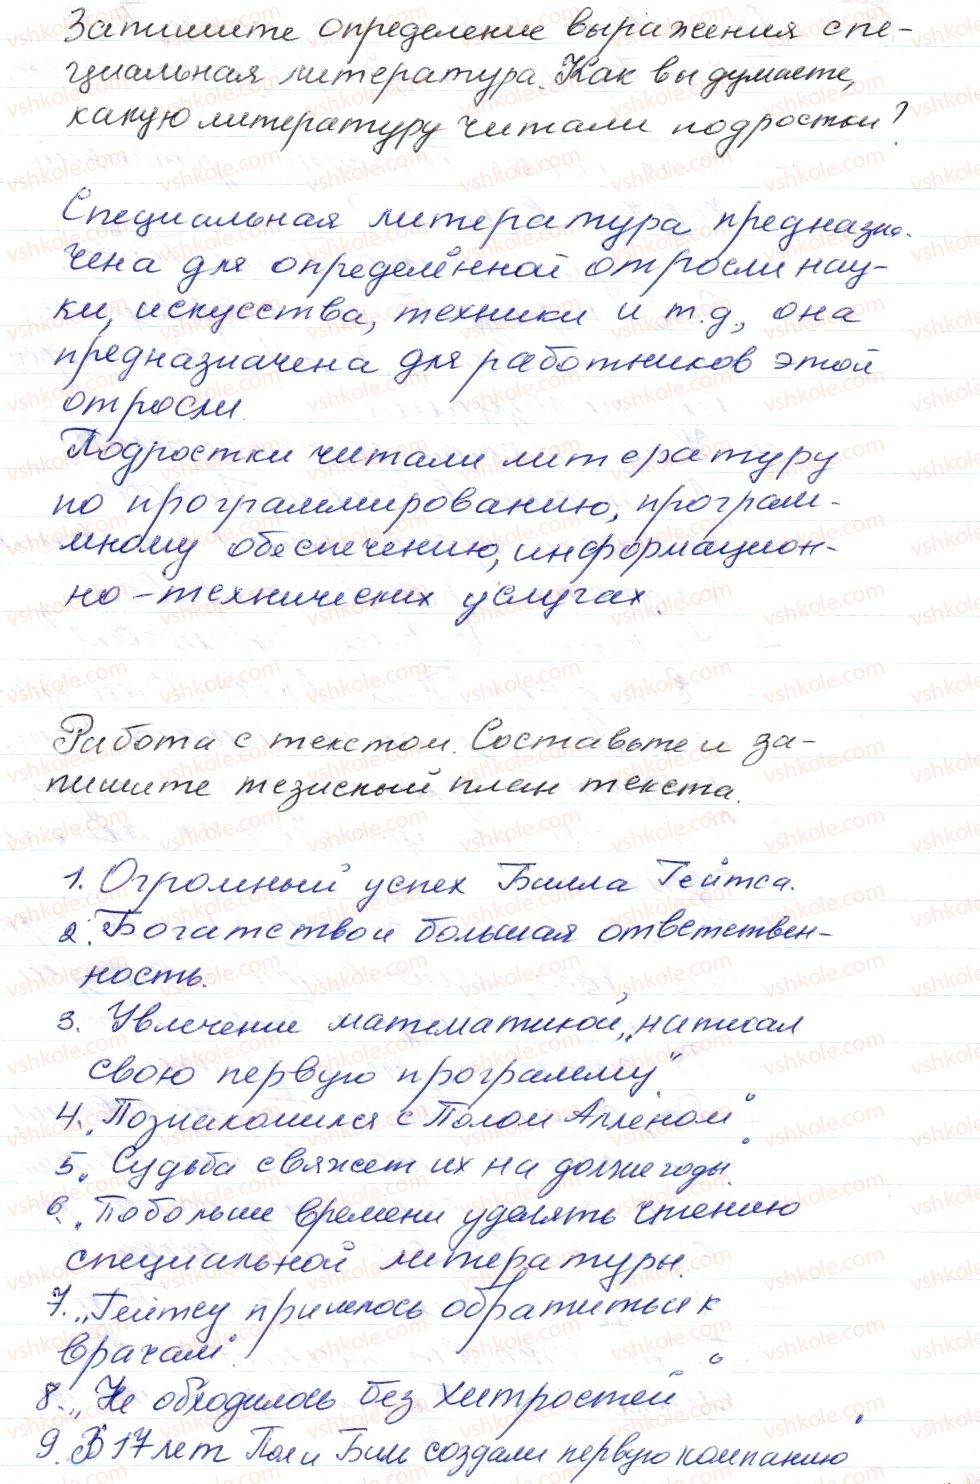 Запишите определение выражения спе-
циальная литература. Как вы думаете,
какую литературу читали подростки?
Специальная литература предназна-
чена для определённой отросли нау-
ки, искусства, техники и т.д., она
предназначена для работников этой
отросли.
Подростки читали литературу
по программированию, програм-
мному обеспечению, информацион-
но-технических услугах.
Работа с текстом. Составьте и за-
пишите тезисный план текста.
1. Огромный успех Билла Гейтса.
2. Богатство и большая ответствен-
ность.
3. Увлечение математикой, „написал
свою первую программу"
4. „Познакомился с Полом Алленом"
5. „Судьба свяжет их на долгие годы"
6. „Побольше времени уделять чтению
специальной литературы.
7. „Гейтсу пришлось обратиться к
врачам".
8. „Не обходилось без хитростей"
9. В 17 лет Пол и Билл создали первую компанию"